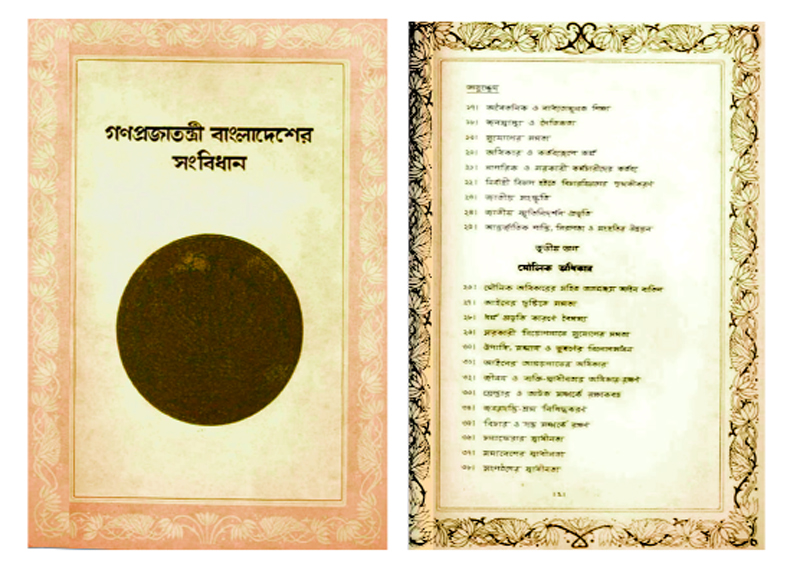 গণপ্রজাতন্ত্রী বাংলাদেশের
সংবিধান
অনুচ্ছেদ
১৭। অবৈতনিক ও বাধ্যতামূলক শিক্ষা
১৮। জনস্বাস্থ্য ও নৈতিকতা
১৯। সুযোগের সমতা
২০। অধিকার ও কর্তব্যরূপে কর্ম
২১। নাগরিক ও সরকারী কর্মচারীদের কর্তব্য
২২। নির্বাহী বিভাগ হইতে বিচারবিভাগের পৃথকীকরণ
২৩। জাতীয় সংস্কৃতি
২৪। জাতীয় স্মৃতিনিদর্শন প্রভৃতি
২৫। আন্তর্জাতিক শান্তি, নিরাপত্তা ও সংহতির উন্নয়ন
তৃতীয় ভাগ
মৌলিক অধিকার
২৬। মৌলিক অধিকারের সহিত অসমঞ্জস আইন বাতিল
২৭। আইনের দৃষ্টিতে সমতা
২৮। ধর্ম প্রভৃতি কারণে বৈষম্য
২৯। সরকারী নিয়োগলাভে সুযোগের সমতা
৩০। উপাধি, সম্মান ও ভূষণের বিলোপসাধন
৩১। আইনের আশ্রয়লাভের অধিকার
৩২। জীবন ও ব্যক্তি-স্বাধীনতার অধিকার-রক্ষণ
৩৩। গ্রেপ্তার ও আটক সম্পর্কে রক্ষাকবচ
৩৪। জবরদস্তি-শ্রম নিষিদ্ধকরণ
৩৫। বিচার ও দণ্ড সম্পর্কে রক্ষণ
৩৬। চলাফেরার স্বাধীনতা
৩৭। সমাবেশের স্বাধীনতা
৩৮। সংগঠনের স্বাধীনতা